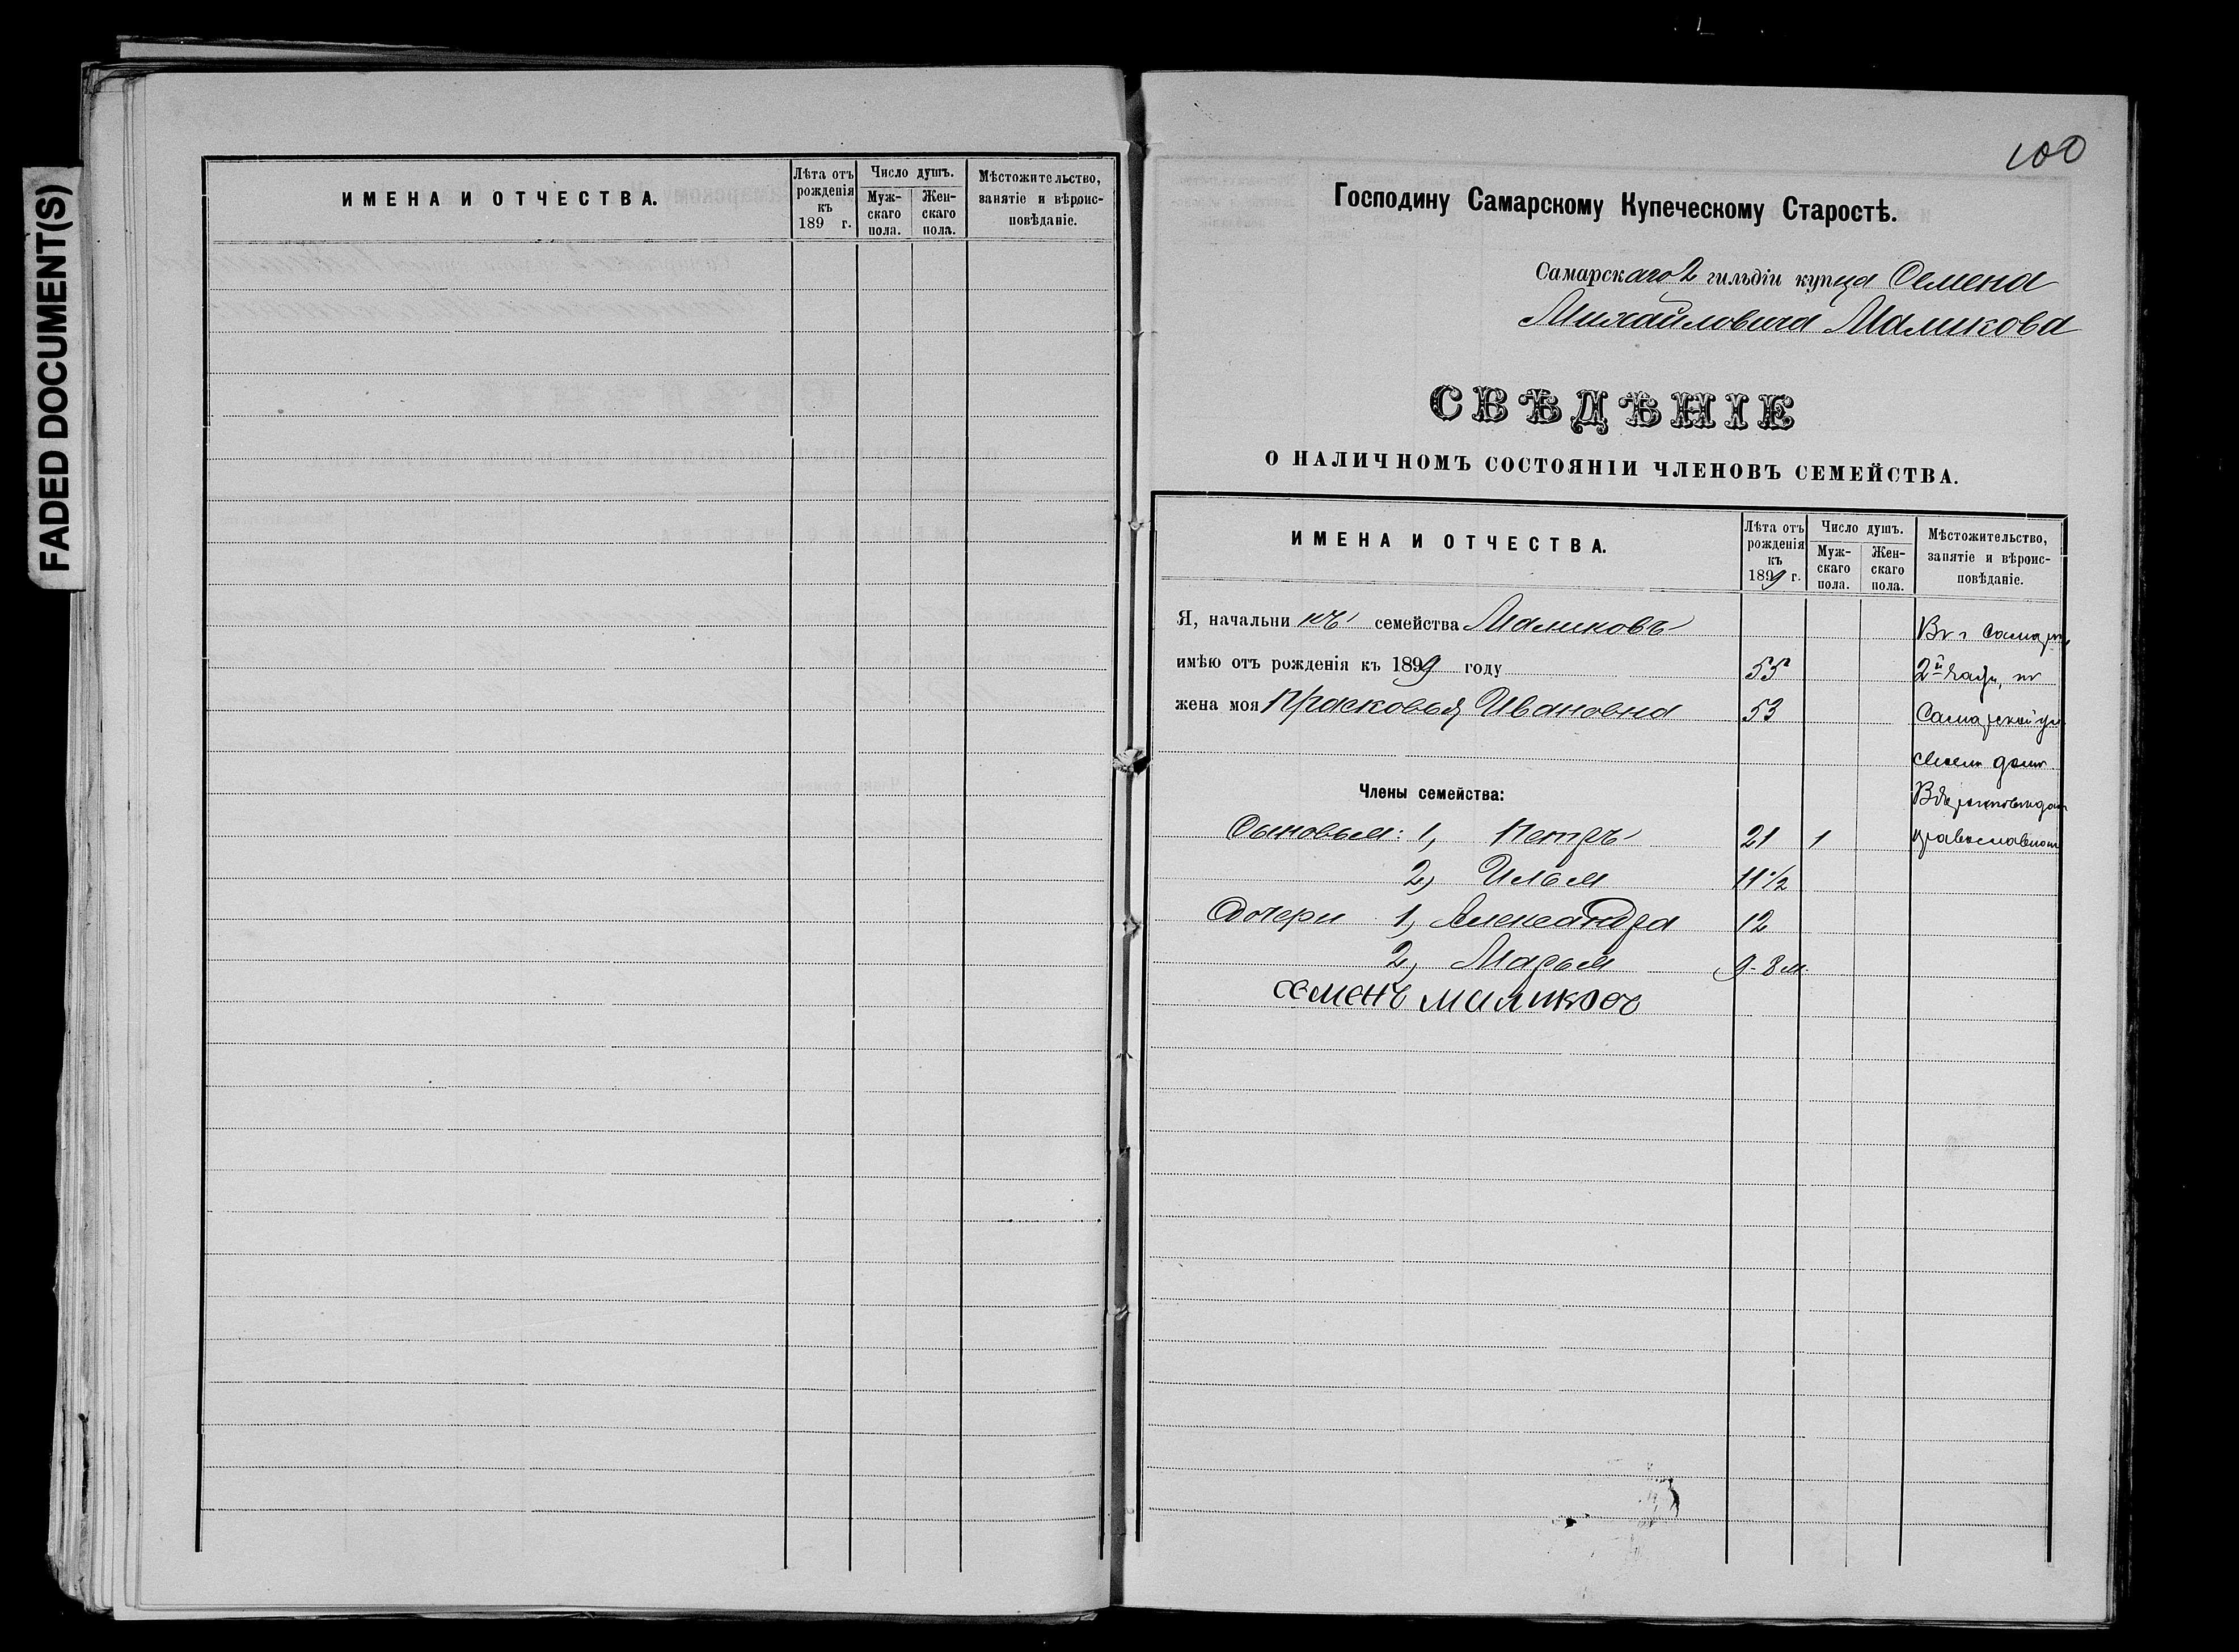 FADED DOCUMENT(S)
ИМЕНА И ОТЧЕСТВА.
Лѣта отъ рожденія къ 189 г.
Число душъ.
Мужскаго пола.
Женскаго пола.
Мѣстожительство, занятіе и вѣроисповѣданіе.
100
Господину Самарскому Купеческому Старостѣ.
Самарскаго 2 гильдіи купца Семена
Михайловича Маликова
СВѢДѢНІЕ
О НАЛИЧНОМЪ СОСТОЯНІИ ЧЛЕНОВЪ СЕМЕЙСТВА.
ИМЕНА И ОТЧЕСТВА.
Лѣта отъ рожденія къ 1899 г.
Число душъ.
Мужскаго пола.
Женскаго пола.
Мѣстожительство, занятіе и вѣроисповѣданіе.
Я, начальникъ семейства Маликовъ
Въ г Самарѣ,
имѣю отъ рожденія къ 1899 году 55
2й части, по
жена моя Прасковья Ивановна 53
Самарской ул
своем доме
Члены семейства:
Сыновья: 1, Петръ 21 1
православнаго
2, Илья 11 1/2
Дочери 1, Александра 12
2, Марья 9-8 м.
Семенъ Маликовъ